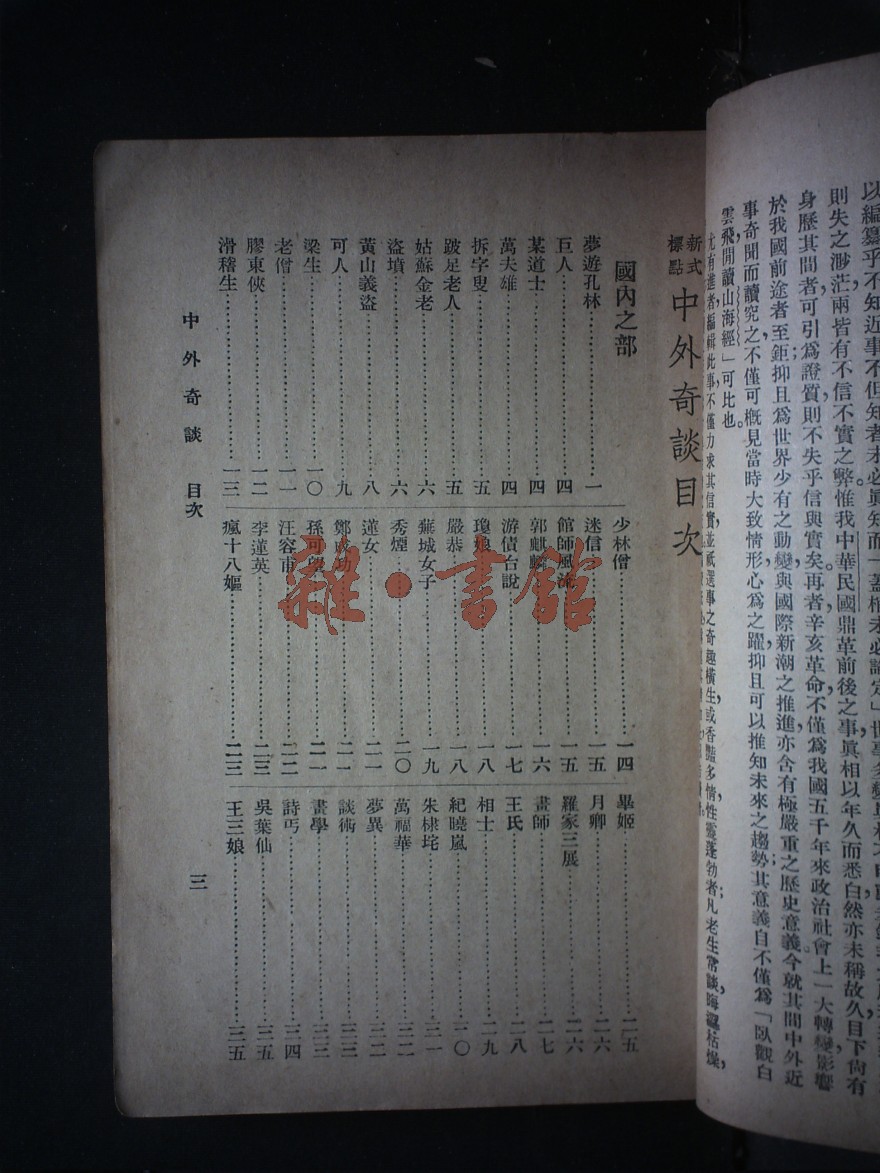 以編纂乎不知近事不但知者未必眞知而「蓋棺未必論定」世事多變
則失之渺茫兩皆有不信不實之弊。惟我中華民國鼎革前後之事眞相以年久而悉白然亦未稱故久目下尙有
身歷其間者可引爲證質則不失乎信與實矣。再者辛亥革命不僅爲我國五千年來政治社會上一大轉變影響
於我國前途者至鉅抑且爲世界少有之動變與國際新潮之推進亦含有極嚴重之歷史意義今就其間中外近
事奇聞而讀究之不僅可槪見當時大致情形心爲之躍抑且可以推知未來之趨勢其意義自不僅爲「臥觀白
雲飛閒讀山海經」可比也。
尤有進者編輯此事不僅力求其信實並祇選事之奇趣橫生或香豔多情性靈蓬勃者凡老生常談晦澀枯燥，
新式標點 中外奇談目次
國內之部
夢遊孔林……一
巨人……四
某道士……四
萬夫雄……四
拆字叟……五
跛足老人……五
姑蘇金老……六
盜墳……六
黃山義盜……八
可人……九
梁生……一〇
老僧……一一
膠東俠……一二
滑稽生……一三
少林僧……一四
迷信……一五
館師風流……一五
郭麒麟……一六
游債台說……一七
瓊娘……一八
嚴恭……一八
蕪城女子……一九
秀煙……二〇
蓮女……二一
鄭成功……二一
孫可望……二一
汪容甫……二二
李蓮英……二三
瘋十八嫗……二三
畢姬……二五
月卿……二六
羅家三展……二六
畫師……二七
王氏……二八
相士……二九
紀曉嵐……三〇
朱棣垞……三一
萬福華……三二
夢異……三二
談術……三三
畫學……三三
詩丐……三四
吳葉仙……三五
王三娘……三五
中外奇談 目次
三
雜·書館